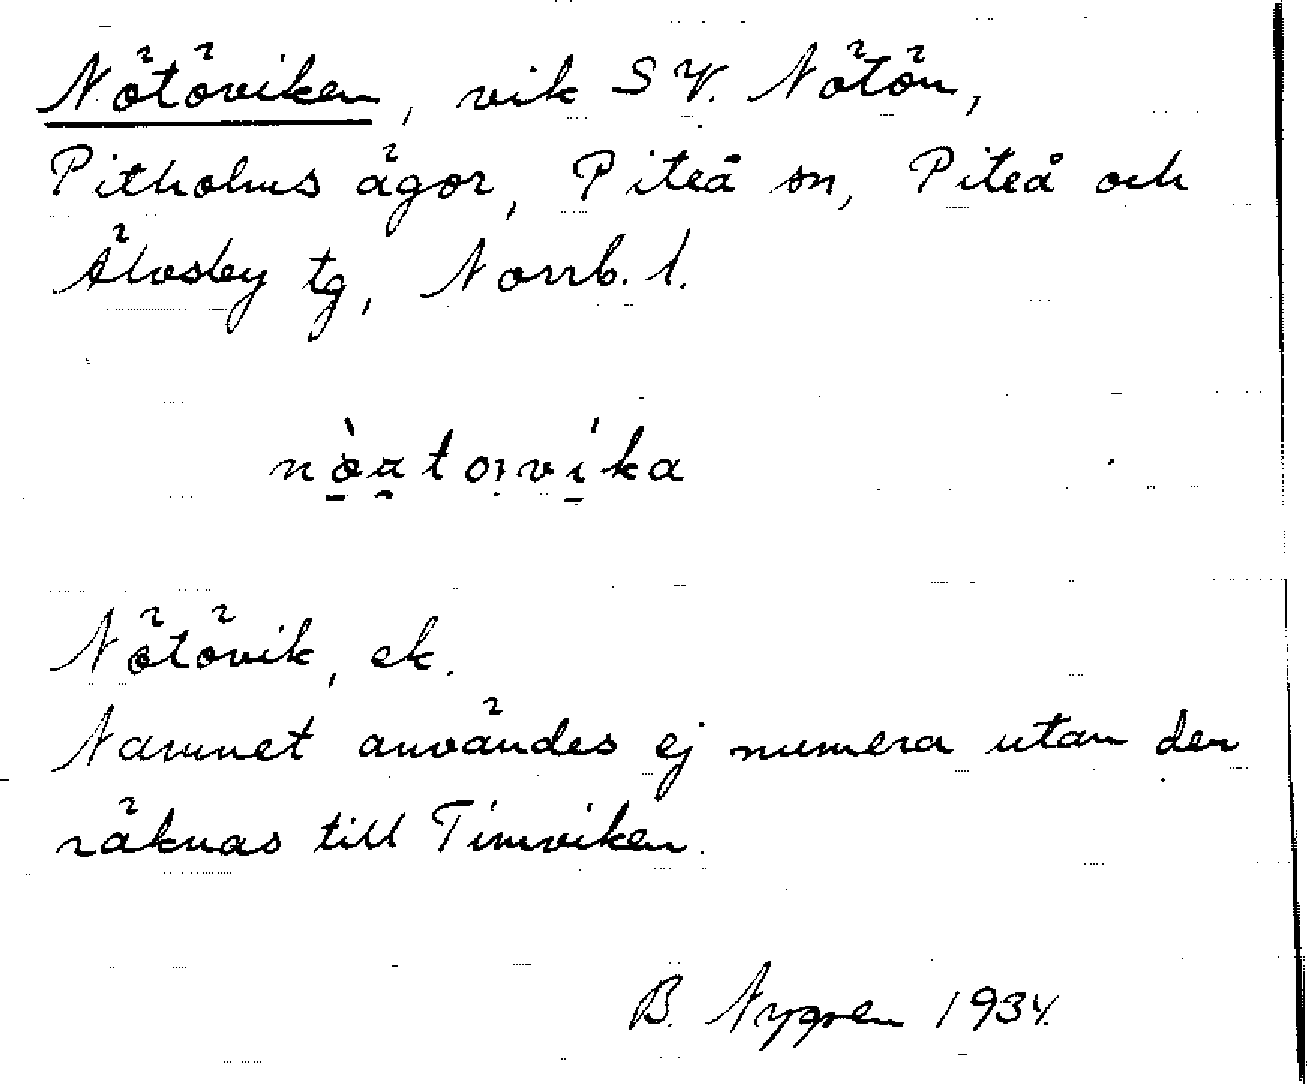 Nötöviken, vik SV. Nötön,
Pitholms ägor, Piteå sn, Piteå och
Älvsby tg, Norrb. l.
Nötövik, ek.
Namnet användes ej numera utan den
räknas till Timviken.
B. Nygren 1934.